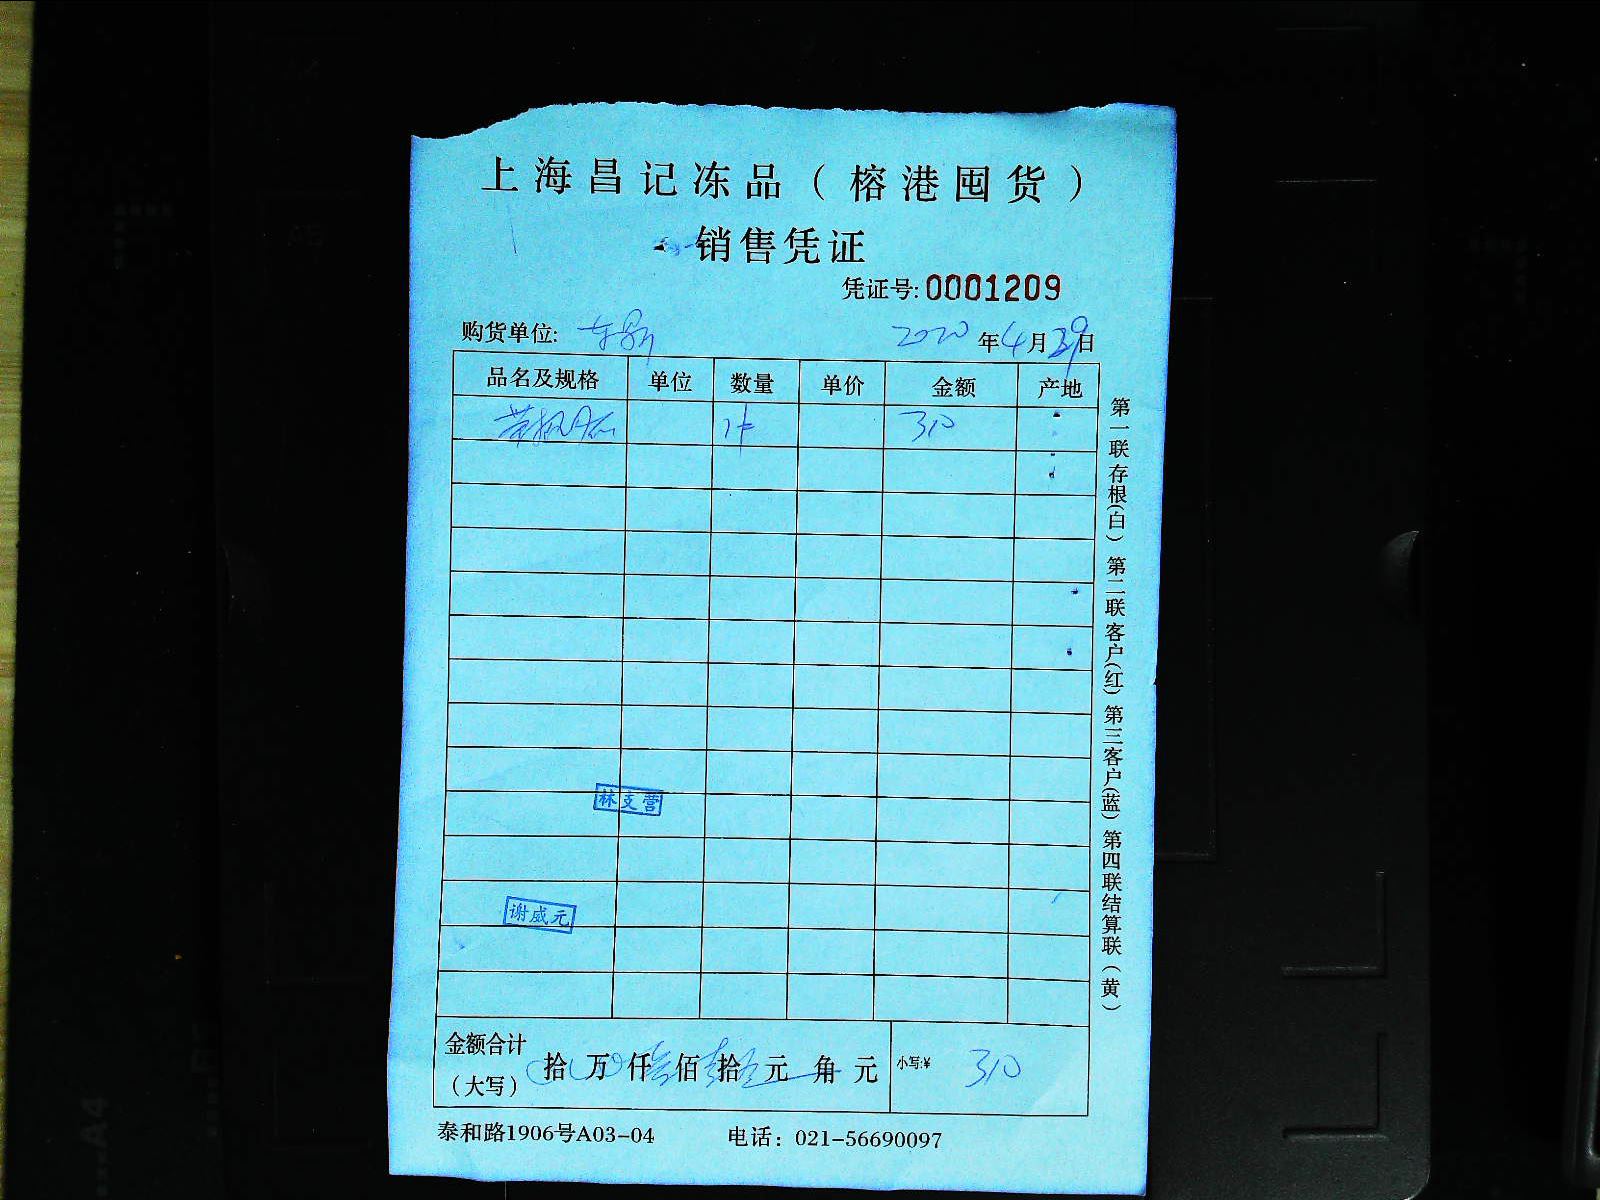 上海昌记冻品（榕港囤货）
销售凭证
凭证号:0001209
购货单位:
2020年4月29日
品名及规格 单位 数量 单价 金额 产地
1件 310
林支营
谢威元
金额合计
（大写） 拾 万 仟 叁 佰 壹 拾 元 角 元 小写:¥ 310
泰和路1906号A03-04 电话：021-56690097
第一联存根(白) 第二联客户(红) 第三客户(蓝) 第四联结算联(黄)